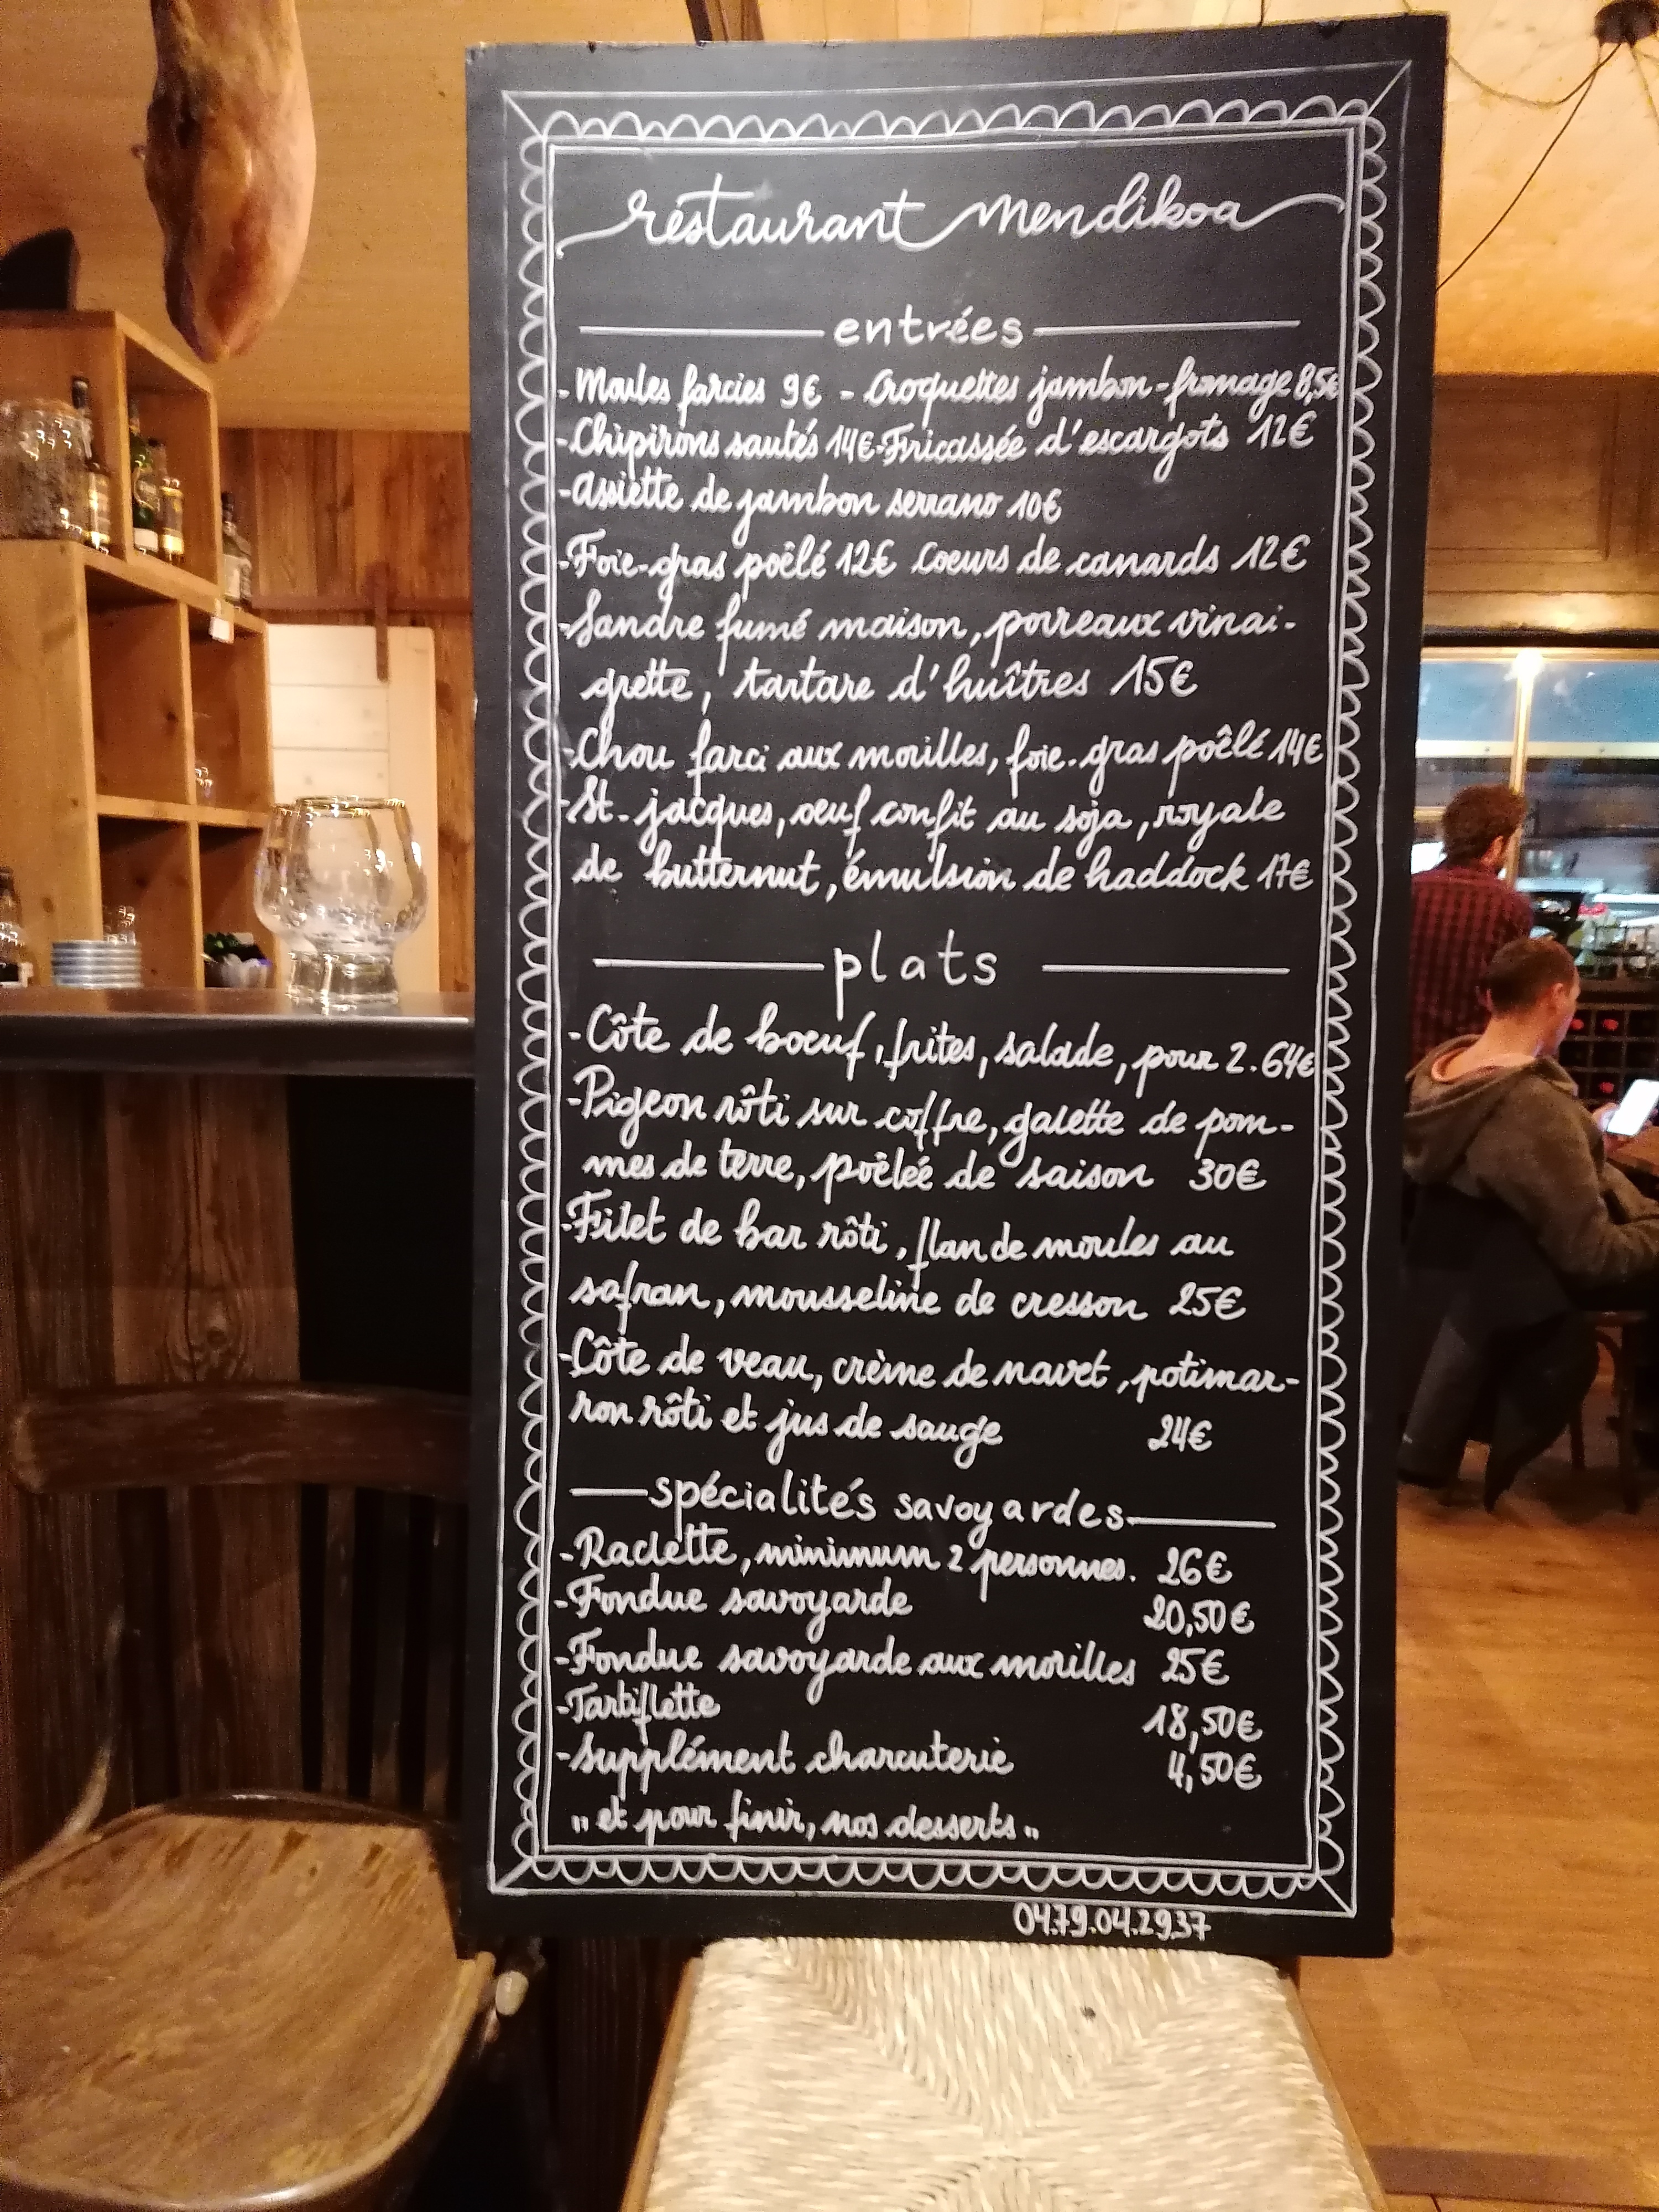 restaurant mendikoa
entrées
- Moules farcies 9€ - Croquettes jambon-fromage 8,5€
- Chipirons sautés 14€ - Fricassée d'escargots 12€
- Assiette de jambon serrano 10€
- Foie-gras poêlé 12€ Coeurs de canards 12€
- Sandre fumé maison, poireaux vinai-
grette, tartare d'huîtres 15€
- Chou farci aux morilles, foie-gras poêlé 14€
- St-jacques, oeuf confit au soja, royale
de butternut, émulsion de haddock 17€
plats
- Côte de boeuf, frites, salade, pour 2. 64€
- Pigeon rôti sur coffre, galette de pom-
mes de terre, poêlée de saison 30€
- Filet de bar rôti, flan de moules au
safran, mousseline de cresson 25€
- Côte de veau, crème de navet, potimar-
ron rôti et jus de sauge 24€
spécialités savoyardes
- Raclette, minimum 2 personnes. 26€
- Fondue savoyarde 20,50€
- Fondue savoyarde aux morilles 25€
- Tartiflette 18,50€
- Supplément charcuterie 4,50€
" et pour finir, nos desserts "
04.79.04.29.37